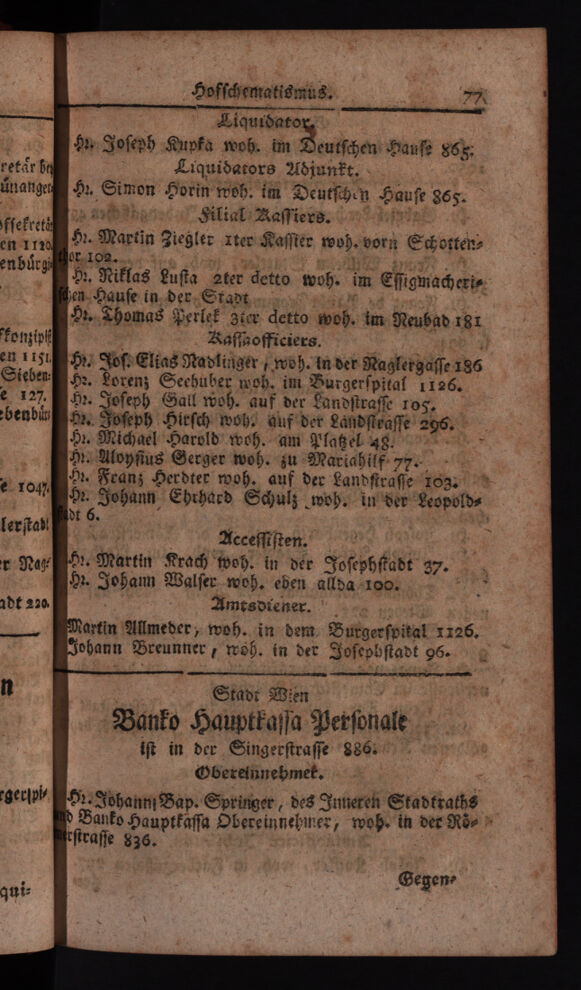 Hofschematismus. 77
Liquidator.
Hr. Joseph Kupka woh. im Deutschen Hause 865.
Liquidators Adjunkt.
Hr. Simon Horin woh. im Deutschen Hause 865.
Filial Kassiers.
Hr. Martin Ziegler 1ter Kassier woh. vorn Schotten-
thor 102.
Hr. Niklas Lusta 2ter detto woh. im Essigmacheri-
schen Hause in der Stadt
Hr. Thomas Perlek 3ier detto woh. im Neubad 181
Kassaofficiers.
Hr. Jos. Elias Nadlinger, woh. in der Naglergasse 186
Hr. Lorenz Seehuber woh. im Burgerspital 1126.
Hr. Joseph Gall woh. auf der Landstrasse 105.
Hr. Joseph Hirsch woh. auf der Landstrasse 296.
Hr. Michael Harold woh. am Platzel 48.
Hr. Aloysius Gerger woh. zu Mariahilf 77.
Hr. Franz Herdter woh. auf der Landstrasse 103.
Hr. Johann Ehrhard Schulz woh. in der Leopold-
stadt 6.
Accessisten.
Hr. Martin Krach woh. in der Josephstadt 37.
Hr. Johann Walser woh. eben allda 100.
Amtsdiener.
Martin Allmeder, woh. in dem Burgerspital 1126.
Johann Breunner, woh. in der Josephstadt 96.
Stadt Wien
Banko Hauptkassa Personale
ist in der Singerstrasse 886.
Obereinnehmer.
Hr. Johann Bap. Springer, des Inneren Stadtraths
und Banko Hauptkassa Obereinnehmer, woh. in der Rö-
merstrasse 836.
Gegen-